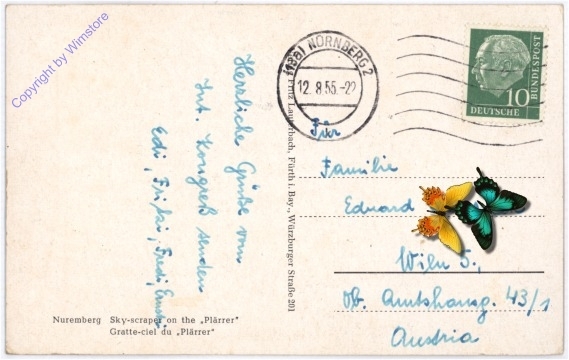 Copyright by Wimstore
Herzliche Grüße vom
Int. Kongreß senden
Edi, Fritzi, Fredi,
(13a) NÜRNBERG 2
12.8.55.-22
10
DEUTSCHE
BUNDESPOST
Fritz Lauterbach, Fürth i. Bay., Würzburger Straße 201
Für
Familie
Eduard
Wien 5.,
Ob. Amtshausg. 43/1
Austria
Nuremberg Sky-scraper on the „Plärrer"
Gratte-ciel du „Plärrer"